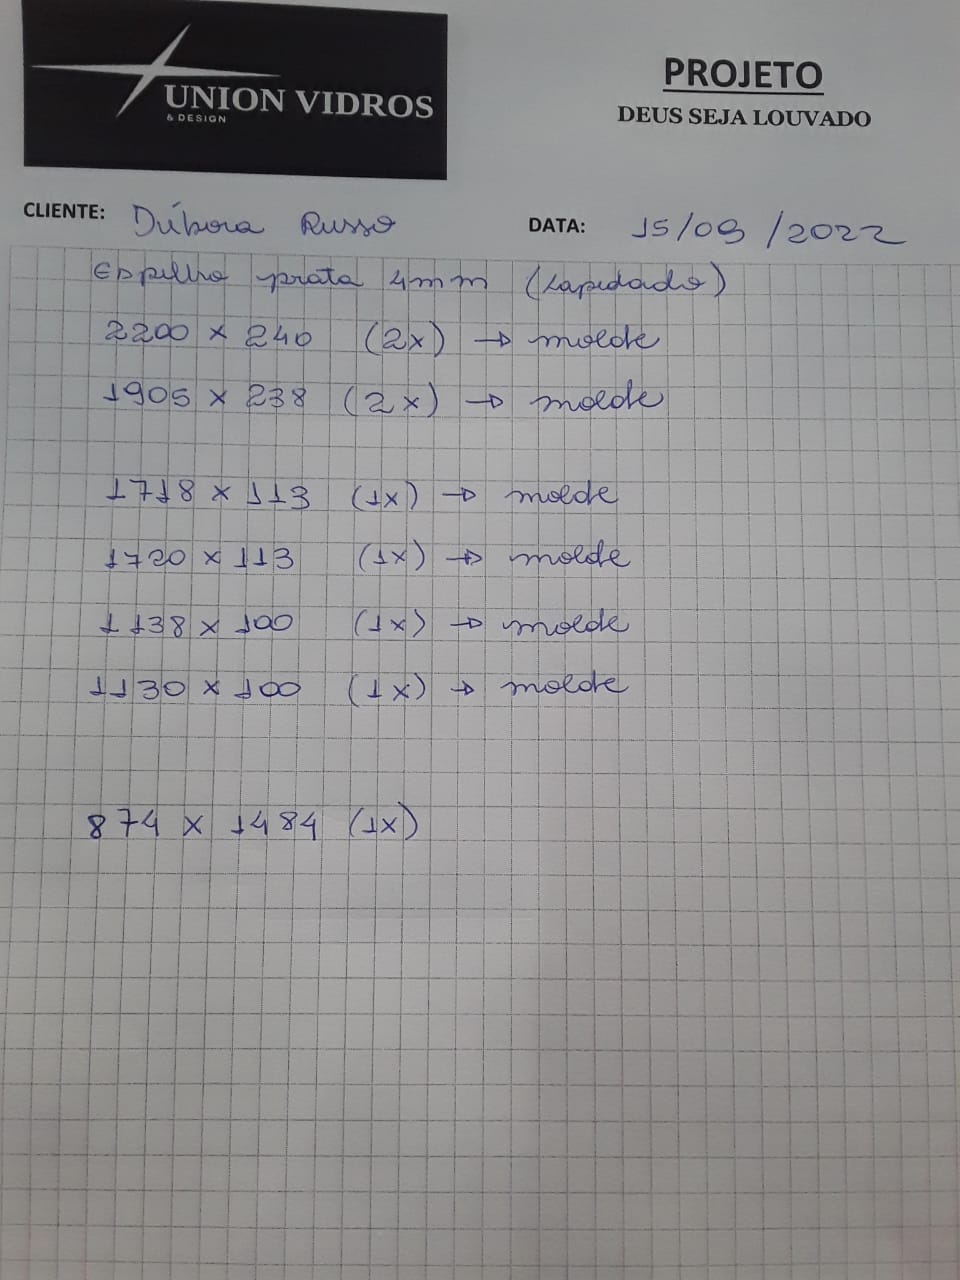 UNION VIDROS
& DESIGN
PROJETO
DEUS SEJA LOUVADO
CLIENTE: Débora Russo
DATA: 15/09/2022
Espelho prata 4mm (Lapidado)
2200 x 240 (2x) → molde
1905 x 238 (2x) → molde
1718 x 113 (1x) → molde
1720 x 113 (1x) → molde
1138 x 100 (1x) → molde
1130 x 100 (1x) → molde
874 x 1484 (1x)